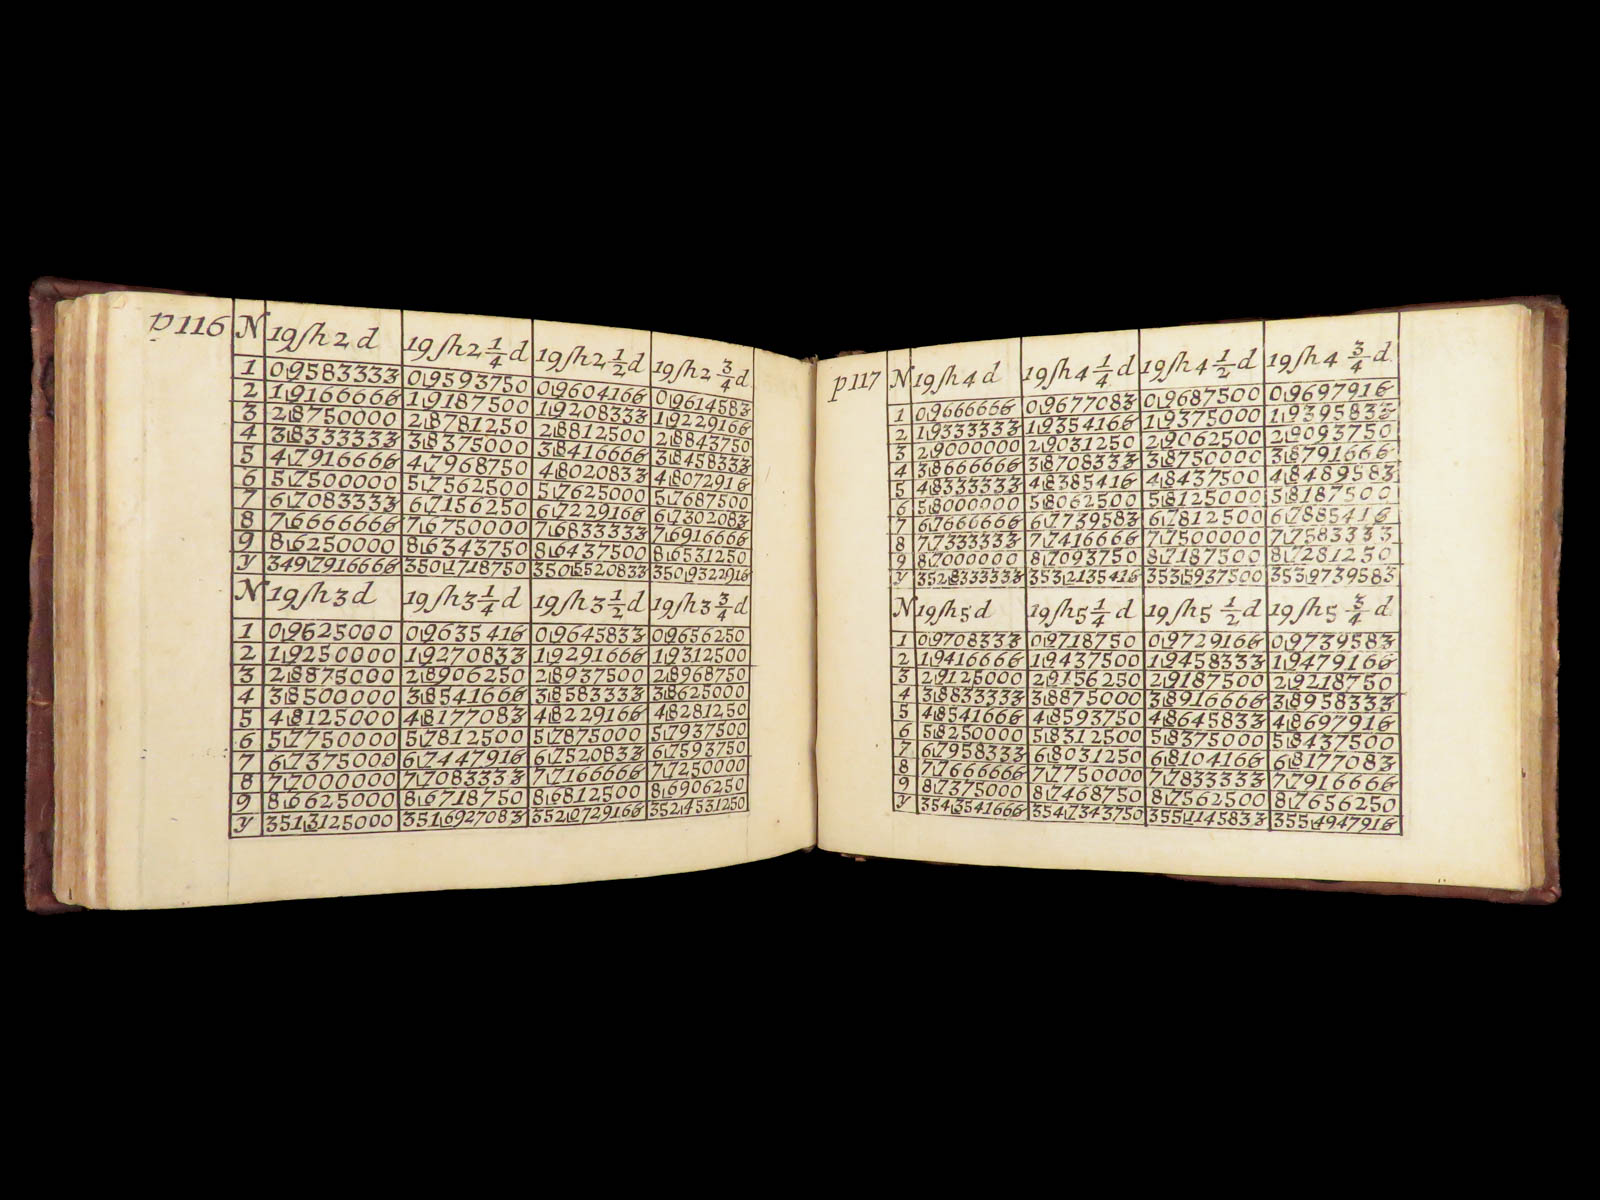 p116
N 19ſh2d 19ſh2¼d 19ſh2½d 19ſh2¾d
1 0⌊9583333 0⌊9593750 0⌊9604166 0⌊9614583
2 1⌊9166666 1⌊9187500 1⌊9208333 1⌊9229166
3 2⌊8750000 2⌊8781250 2⌊8812500 2⌊8843750
4 3⌊8333333 3⌊8375000 3⌊8416666 3⌊8458333
5 4⌊7916666 4⌊7968750 4⌊8020833 4⌊8072916
6 5⌊7500000 5⌊7562500 5⌊7625000 5⌊7687500
7 6⌊7083333 6⌊7156250 6⌊7229166 6⌊7302083
8 7⌊6666666 7⌊6750000 7⌊6833333 7⌊6916666
9 8⌊6250000 8⌊6343750 8⌊6437500 8⌊6531250
y 349⌊7916666 350⌊1718750 350⌊5520833 350⌊9322916
N 19ſh3d 19ſh3¼d 19ſh3½d 19ſh3¾d
1 0⌊9625000 0⌊9635416 0⌊9645833 0⌊9656250
2 1⌊9250000 1⌊9270833 1⌊9291666 1⌊9312500
3 2⌊8875000 2⌊8906250 2⌊8937500 2⌊8968750
4 3⌊8500000 3⌊8541666 3⌊8583333 3⌊8625000
5 4⌊8125000 4⌊8177083 4⌊8229166 4⌊8281250
6 5⌊7750000 5⌊7812500 5⌊7875000 5⌊7937500
7 6⌊7375000 6⌊7447916 6⌊7520833 6⌊7593750
8 7⌊7000000 7⌊7083333 7⌊7166666 7⌊7250000
9 8⌊6625000 8⌊6718750 8⌊6812500 8⌊6906250
y 351⌊3125000 351⌊6927083 352⌊0729166 352⌊4531250
p117
N 19ſh4d 19ſh4¼d 19ſh4½d 19ſh4¾d
1 0⌊9666666 0⌊9677083 0⌊9687500 0⌊9697916
2 1⌊9333333 1⌊9354166 1⌊9375000 1⌊9395833
3 2⌊9000000 2⌊9031250 2⌊9062500 2⌊9093750
4 3⌊8666666 3⌊8708333 3⌊8750000 3⌊8791666
5 4⌊8333333 4⌊8385416 4⌊8437500 4⌊8489583
6 5⌊8000000 5⌊8062500 5⌊8125000 5⌊8187500
7 6⌊7666666 6⌊7739583 6⌊7812500 6⌊7885416
8 7⌊7333333 7⌊7416666 7⌊7500000 7⌊7583333
9 8⌊7000000 8⌊7093750 8⌊7187500 8⌊7281250
y 352⌊8333333 353⌊2135416 353⌊5937500 353⌊9739583
N 19ſh5d 19ſh5¼d 19ſh5½d 19ſh5¾d
1 0⌊9708333 0⌊9718750 0⌊9729166 0⌊9739583
2 1⌊9416666 1⌊9437500 1⌊9458333 1⌊9479166
3 2⌊9125000 2⌊9156250 2⌊9187500 2⌊9218750
4 3⌊8833333 3⌊8875000 3⌊8916666 3⌊8958333
5 4⌊8541666 4⌊8593750 4⌊8645833 4⌊8697916
6 5⌊8250000 5⌊8312500 5⌊8375000 5⌊8437500
7 6⌊7958333 6⌊8031250 6⌊8104166 6⌊8177083
8 7⌊7666666 7⌊7750000 7⌊7833333 7⌊7916666
9 8⌊7375000 8⌊7468750 8⌊7562500 8⌊7656250
y 354⌊3541666 354⌊7343750 355⌊1145833 355⌊4947916